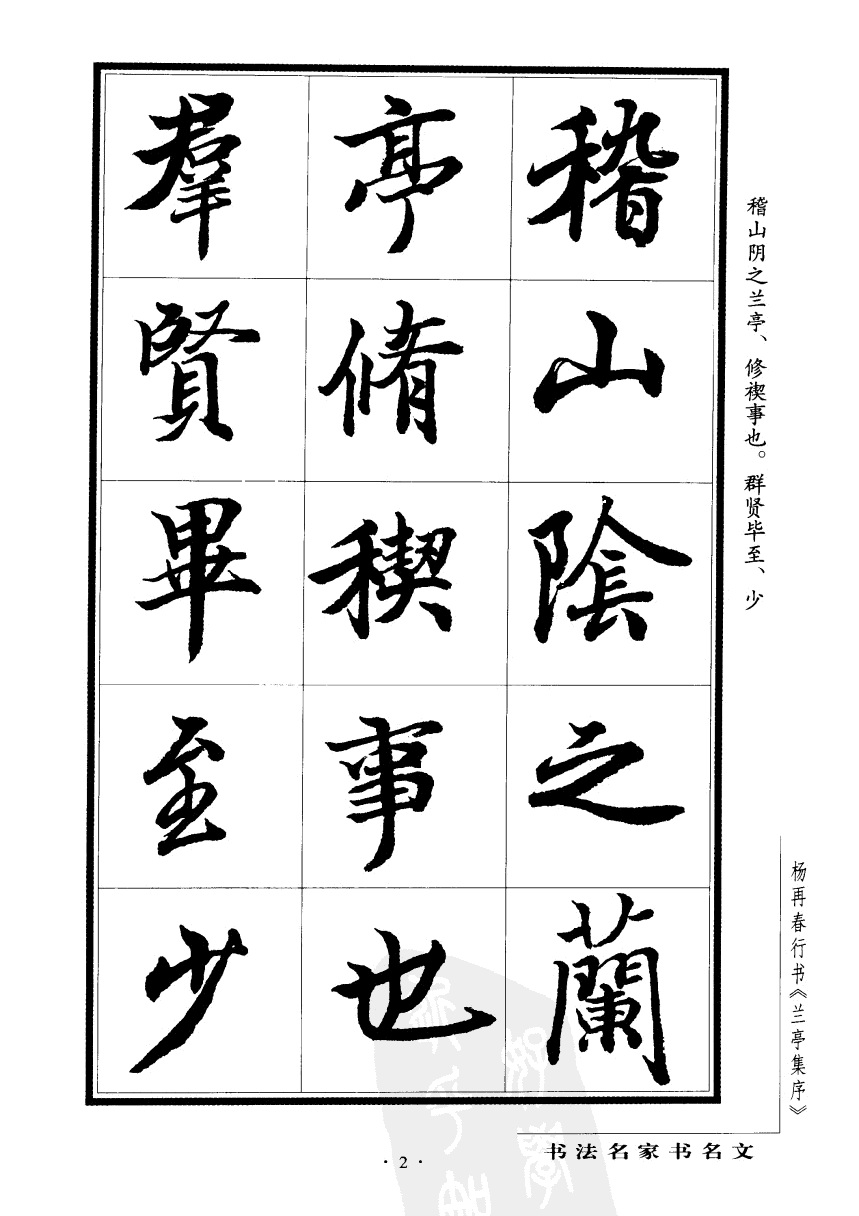 稽山阴之兰亭、修禊事也。群贤毕至、少
稽山陰之蘭
亭脩稧事也
羣賢畢至少
杨再春行书《兰亭集序》
书法名家书名文
·2·